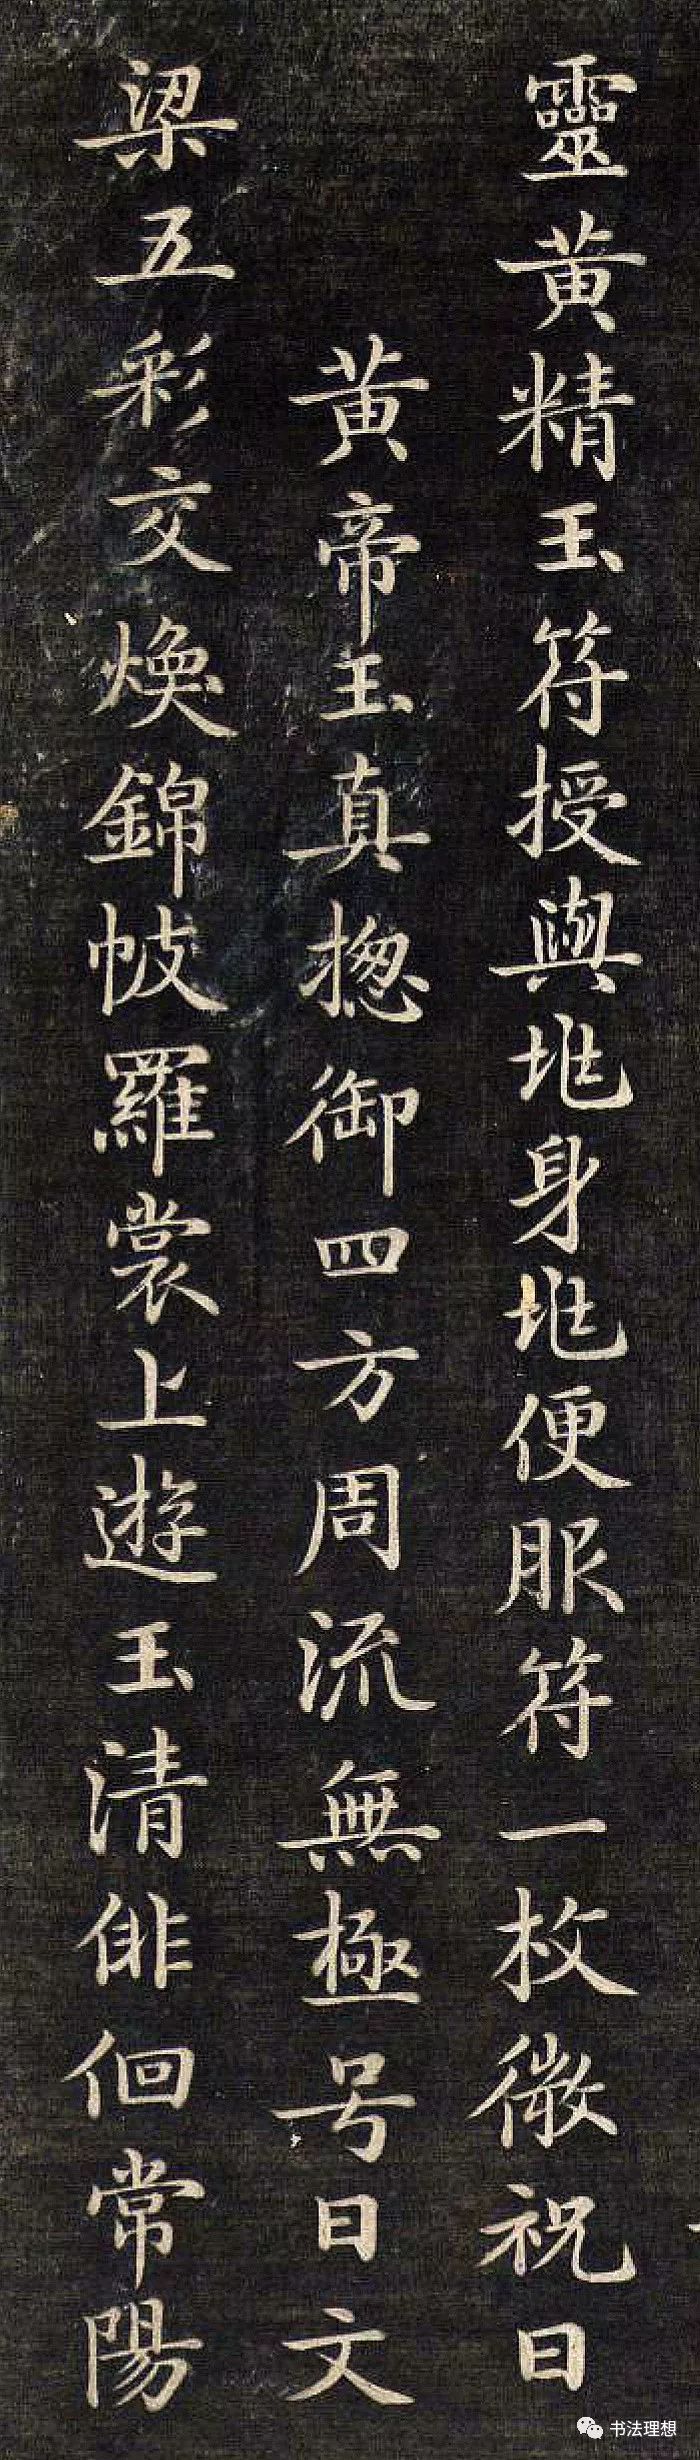 靈黄精玉符授與兆身兆便服符一枚微祝曰
黄帝玉真揔御四方周流無極号曰文
梁五彩交焕錦帔羅裳上遊玉清俳佪常陽
书法理想